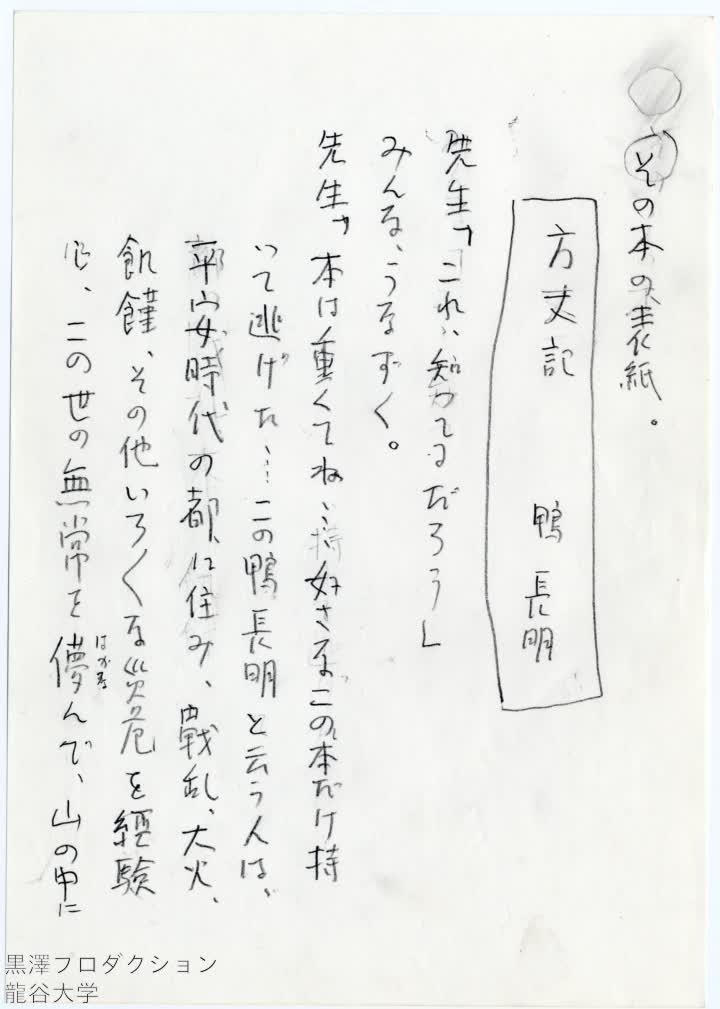 ○その本の表紙。
方丈記　鴨長明
先生「これ、知ってるだろう」
みんな、うなずく。
先生「本は重くてね…好きなこの本だけ持
って逃げた…この鴨長明と云う人は、
平安時代の都に住み、戦乱、大火、
飢饉、その他いろ〱な災危を経験
し、この世の無常を儚んで、山の中に
はかな
黒澤プロダクション
龍谷大学